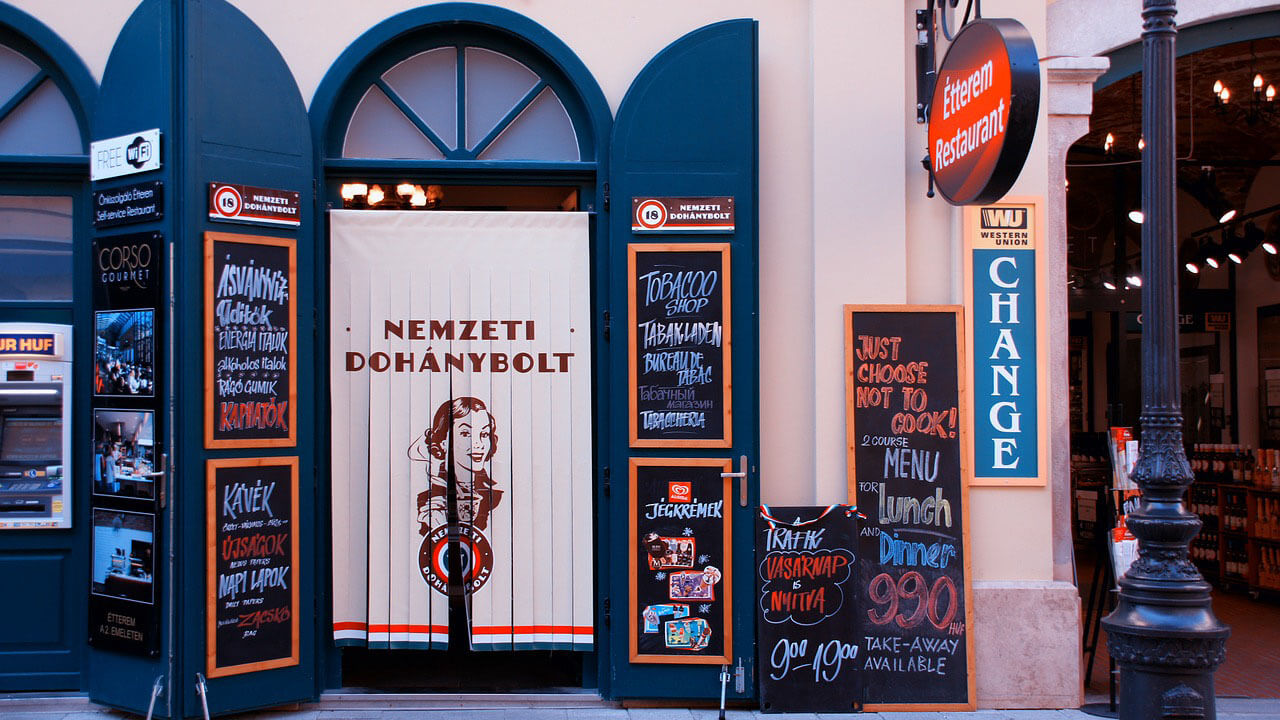 UR HUF
FREE WiFi
Önkiszolgáló Étterem
Self-service Restaurant
CORSO
GOURMET
ÉTTEREM
A 2. EMELETEN
18 NEMZETI
DOHÁNYBOLT
ÁSVÁNYVÍZ
Üdítők
ENERGIA ITALOK
alkoholos italok
RÁGÓ GUMIK
KAPHATÓK
KÁVÉK
ÚJSÁGOK
NEWS PAPERS
NAPI LAPOK
DAILY PAPERS
ZACSKÓ
BAG
NEMZETI
DOHÁNYBOLT
NEMZETI
DOHÁNYBOLT
18 NEMZETI
DOHÁNYBOLT
TOBACOO
SHOP
TABAKLADEN
BUREAU DE
TABAC
Табачный
магазин
TABACCHERIA
JÉGKRÉMEK
TRAFIK
VASÁRNAP
IS
NYITVA
9⁰⁰-19⁰⁰
JUST
CHOOSE
NOT TO
COOK!
2 COURSE
MENU
FOR Lunch
AND Dinner
990
HUF
TAKE-AWAY
AVAILABLE
Étterem
Restaurant
WU
WESTERN
UNION
CHANGE